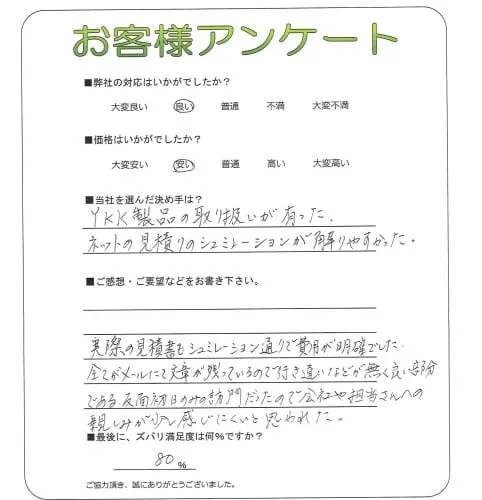 お客様アンケート
■弊社の対応はいかがでしたか？
大変良い 良い 普通 不満 大変不満
■価格はいかがでしたか？
大変安い 安い 普通 高い 大変高い
■当社を選んだ決め手は？
YKK製品の取り扱いが有った.
ネットの見積りのシュミレーションが解りやすかった。
■ご感想・ご要望などをお書き下さい。
実際の見積書もシュミレーション通りで費用が明確でした.
全てがメールにて文章が残っているので行き違いなどが無く良い部分
である.反面初日のみの訪問だったので会社や担当さんへの
親しみが少し感じにくいと思われた。
■最後に、ズバリ満足度は何%ですか？
80%
ご協力頂き、誠にありがとうございました。